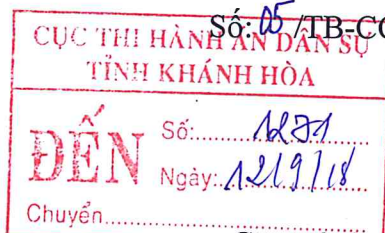 Số: 05 /TB-CC
CỤC THI HÀNH ÁN DÂN SỰ
TỈNH KHÁNH HÒA
ĐẾN
Số:.......1271
Ngày:.12/9/18
Chuyển